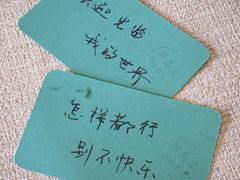 欢迎光临
我的世界
怎样都行
别不快乐